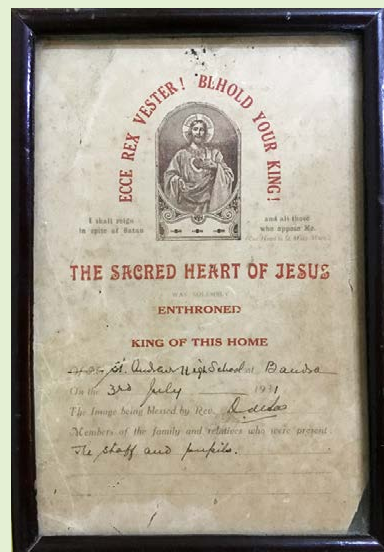 ECCE REX VESTER! BEHOLD YOUR KING!
I shall reign
in spite of Satan
and all those
who oppose Me.
THE SACRED HEART OF JESUS
WAS SOLEMNLY
ENTHRONED
KING OF THIS HOME
St. Andrew High School at Bandra
On the 3rd July 1931
The Image being blessed by Rev.
Members of the family and relatives who were present.
The staff and pupils.